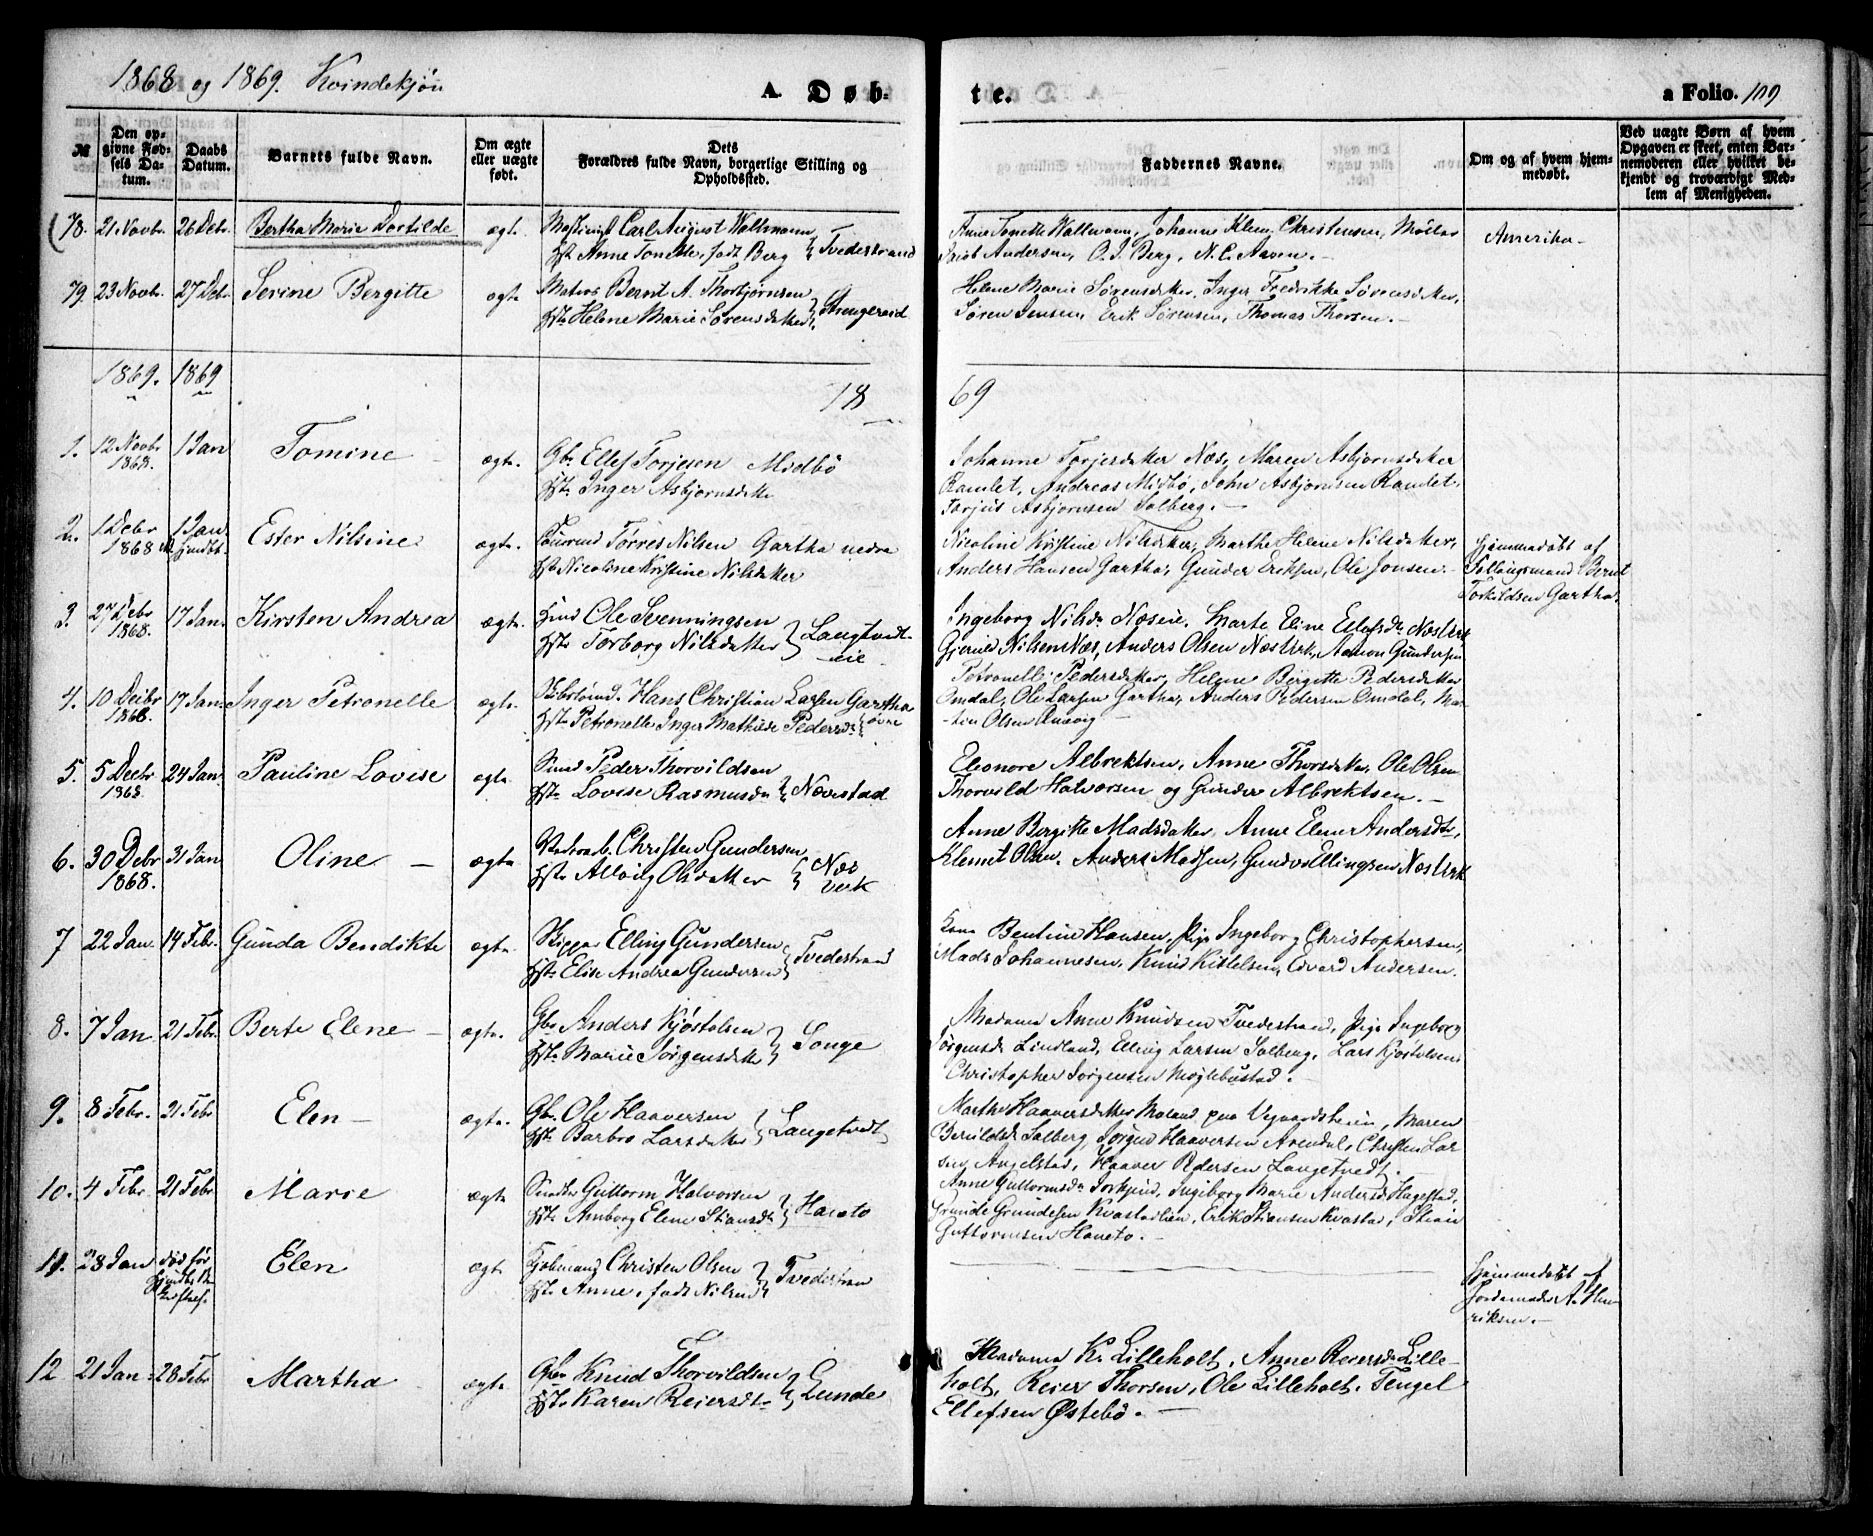 1868 og 1869. Kvindekjøn
A. Døb-
te.
a Folio. 109
№
Den op-
givne Fød-
sels Da-
tum.
Daabs
Datum.
Barnets fulde Navn.
Om ægte
eller uægte
født.
Dets
Forældres fulde Navn, borgerlige Stilling og
Opholdssted.
Faddernes Navne.
Om og af hvem hjem-
medøbt.
Ved uægte Børn af hvem
Opgaven er skeet, enten Bar-
nemoderen eller hvilket be-
kjendt og troværdigt Med-
lem af Menigheden.
78. 21 Novbr. 26 Debr. Bertha Marie Dortilde ægte
Carl August Wallmann
Hst. Anne Tonette, født Berg } Tvedestrand
Anne Tonette Wallmann, Johanne Christensen,
Andersen, O. J. Berg, N. C. Aasen.
Amerika
79. 23 Novb. 27 Deb. Serine Bergitte ægte
Matros Bernt A. Thorbjørnsen
Hst. Helene Marie Sørensdatter }
Helene Marie Sørensdatter, Inger Fredrikke Sørensdatter,
Søren Jensen, Erik Sørensen, Thomas Thorsen.
1869. 1869
18
69
1. 12 Novbr 1868. 1 Jan Tomine ægte.
Gbr. Ellef Torjesen Midbö
Hst. Inger Asbjørnsdatter
Johanne Torjesdatter Næs, Maren Asbjørnsdatter
Ramlet, Andreas Midbö, John Asbjørnsen Ramlet,
Torjus Asbjørnsen Solberg.
2. 1 Debr 1868 1 Jan. Ester Nilsine ægte.
Tørres Nilsen Gartha nedre
Hst. Nicoline Kristine Nilsdatter
Nicoline Kristine Nilsdatter, Marthe Helene Nilsdatter,
Anders Hansen Gartha, Gunder Eriksen, Ole Jonsen.
Hjemmedøbt af
Bernt
Torkildsen Gartha.
3. 27 Debr 1868. 17 Jan. Kirsten Andrea ægte.
Ole Svenningsen
Hst. Torborg Nilsdatter } Langtvedt-
eie
Ingeborg Nilsdr Næseie, Marte Eline Ellefsdr NæsVrk
Gjeruld Nilsen Næs, Anders Olsen NæsVrk, Aamon Gundersen
4. 10 Debr 1868. 17 Jan. Inger Petronelle ægte.
Hans Christian Larsen Gartha
Hst. Petronelle Inger Mathilde Pedersdr } øvre
Petronelle Pedersdatter, Helene Bergitte Pedersdatter
Omdal, Ole Larsen Gartha, Anders Pedersen Omdal, Mar-
tin Olsen
5. 5 Decbr 1868 24 Jan Pauline Lovise ægte
Peder Thorvildsen
Hst. Lovise Rasmusdr } Nævestad
Eleonore Albrektsen, Anne Thorsdatter, Ole Olsen
Thorvild Halvorsen og Gunder Albrektsen.
6. 30 Debr 1868. 31 Jan Oline ægte
Christen Gundersen
Hst. Olsdatter } Næs
verk
Anne Bergitte Madsdatter, Anne Elene Andersdtr,
Klemet Olsen, Anders Madsen, Ellingsen NæsVrk
7 22 Jan. 14 Febr. Gunda Bendikte ægte.
Skipper Elling Gundersen
Hst. Elise Andrea Gundersen } Tvedestrand
Kone Bentine Hansen, Pige Ingeborg Christophersen,
Mads Johannesen, Knud Kittelsen, Edvard Andersen.
8. 7 Jan 21 Febr. Berte Elene ægte.
Gbr Anders Kjøstolsen
Hst. Marie Jørgensdatter } Songe
Madame Anne Knudsen Tvedestrand, Pige Ingeborg
Jørgensdr Lindland, Elling Larsen Solberg, Lars Kjøstolsen
Christopher Jørgensen Møglebustad.
9. 8 Febr. 21 Febr Elen ægte.
Gbr. Ole Haaversen
Hst. Barbro Larsdatter } Langetvedt
Marthe Haaversdatter Moland paa Vegaardsheien, Maren
Beruldsdr Solberg, Jørgen Haaversen Arendal, Christen Lar-
sen Angelstad, Haaver Pedersen Langetvedt.
10. 4 Febr. 21 Febr Marie ægte
Guttorm Halvorsen
Hst. Anborg Elene Stiansdr } Haueto
Anne Guttormsdr, Ingeborg Marie Andersdr Hagestad,
Grunde Grundesen Kvastadlien, Erik Stiansen Kvastad, Stian
Guttormsen Haueto.
11. 28 Jan død før Elen ægte
Christen Olsen
Hst. Anne, født Nilsen } Tvedestrand
Hjemmedøbt af
Jordemoder A. Hen-
riksen.
12 21 Jan 28 Febr Martha ægte.
Gbr Knud Thorvildsen
Hst. Karen Reiersdtr } Lunde
Madame K. Lilleholt, Anne Reiersdr Lille-
holt, Reier Thorsen, Ole Lilleholt, Tengel
Ellefsen Østebö.